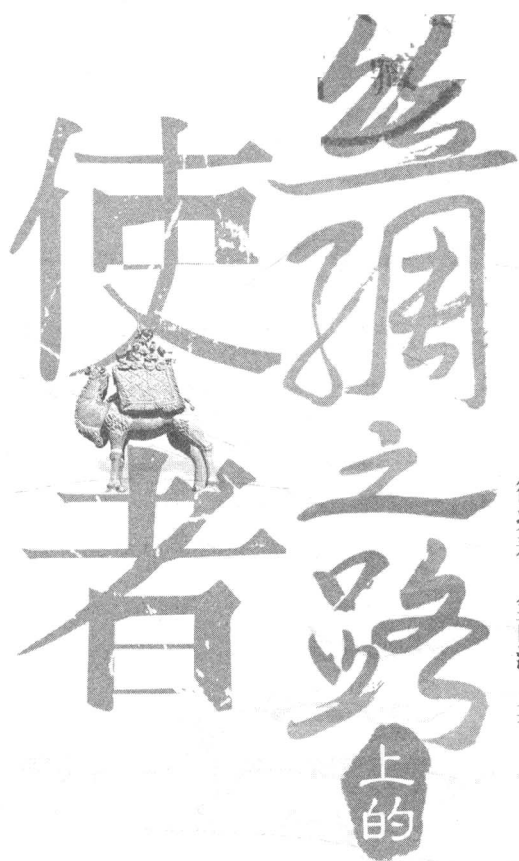 丝绸之路
上的
使者